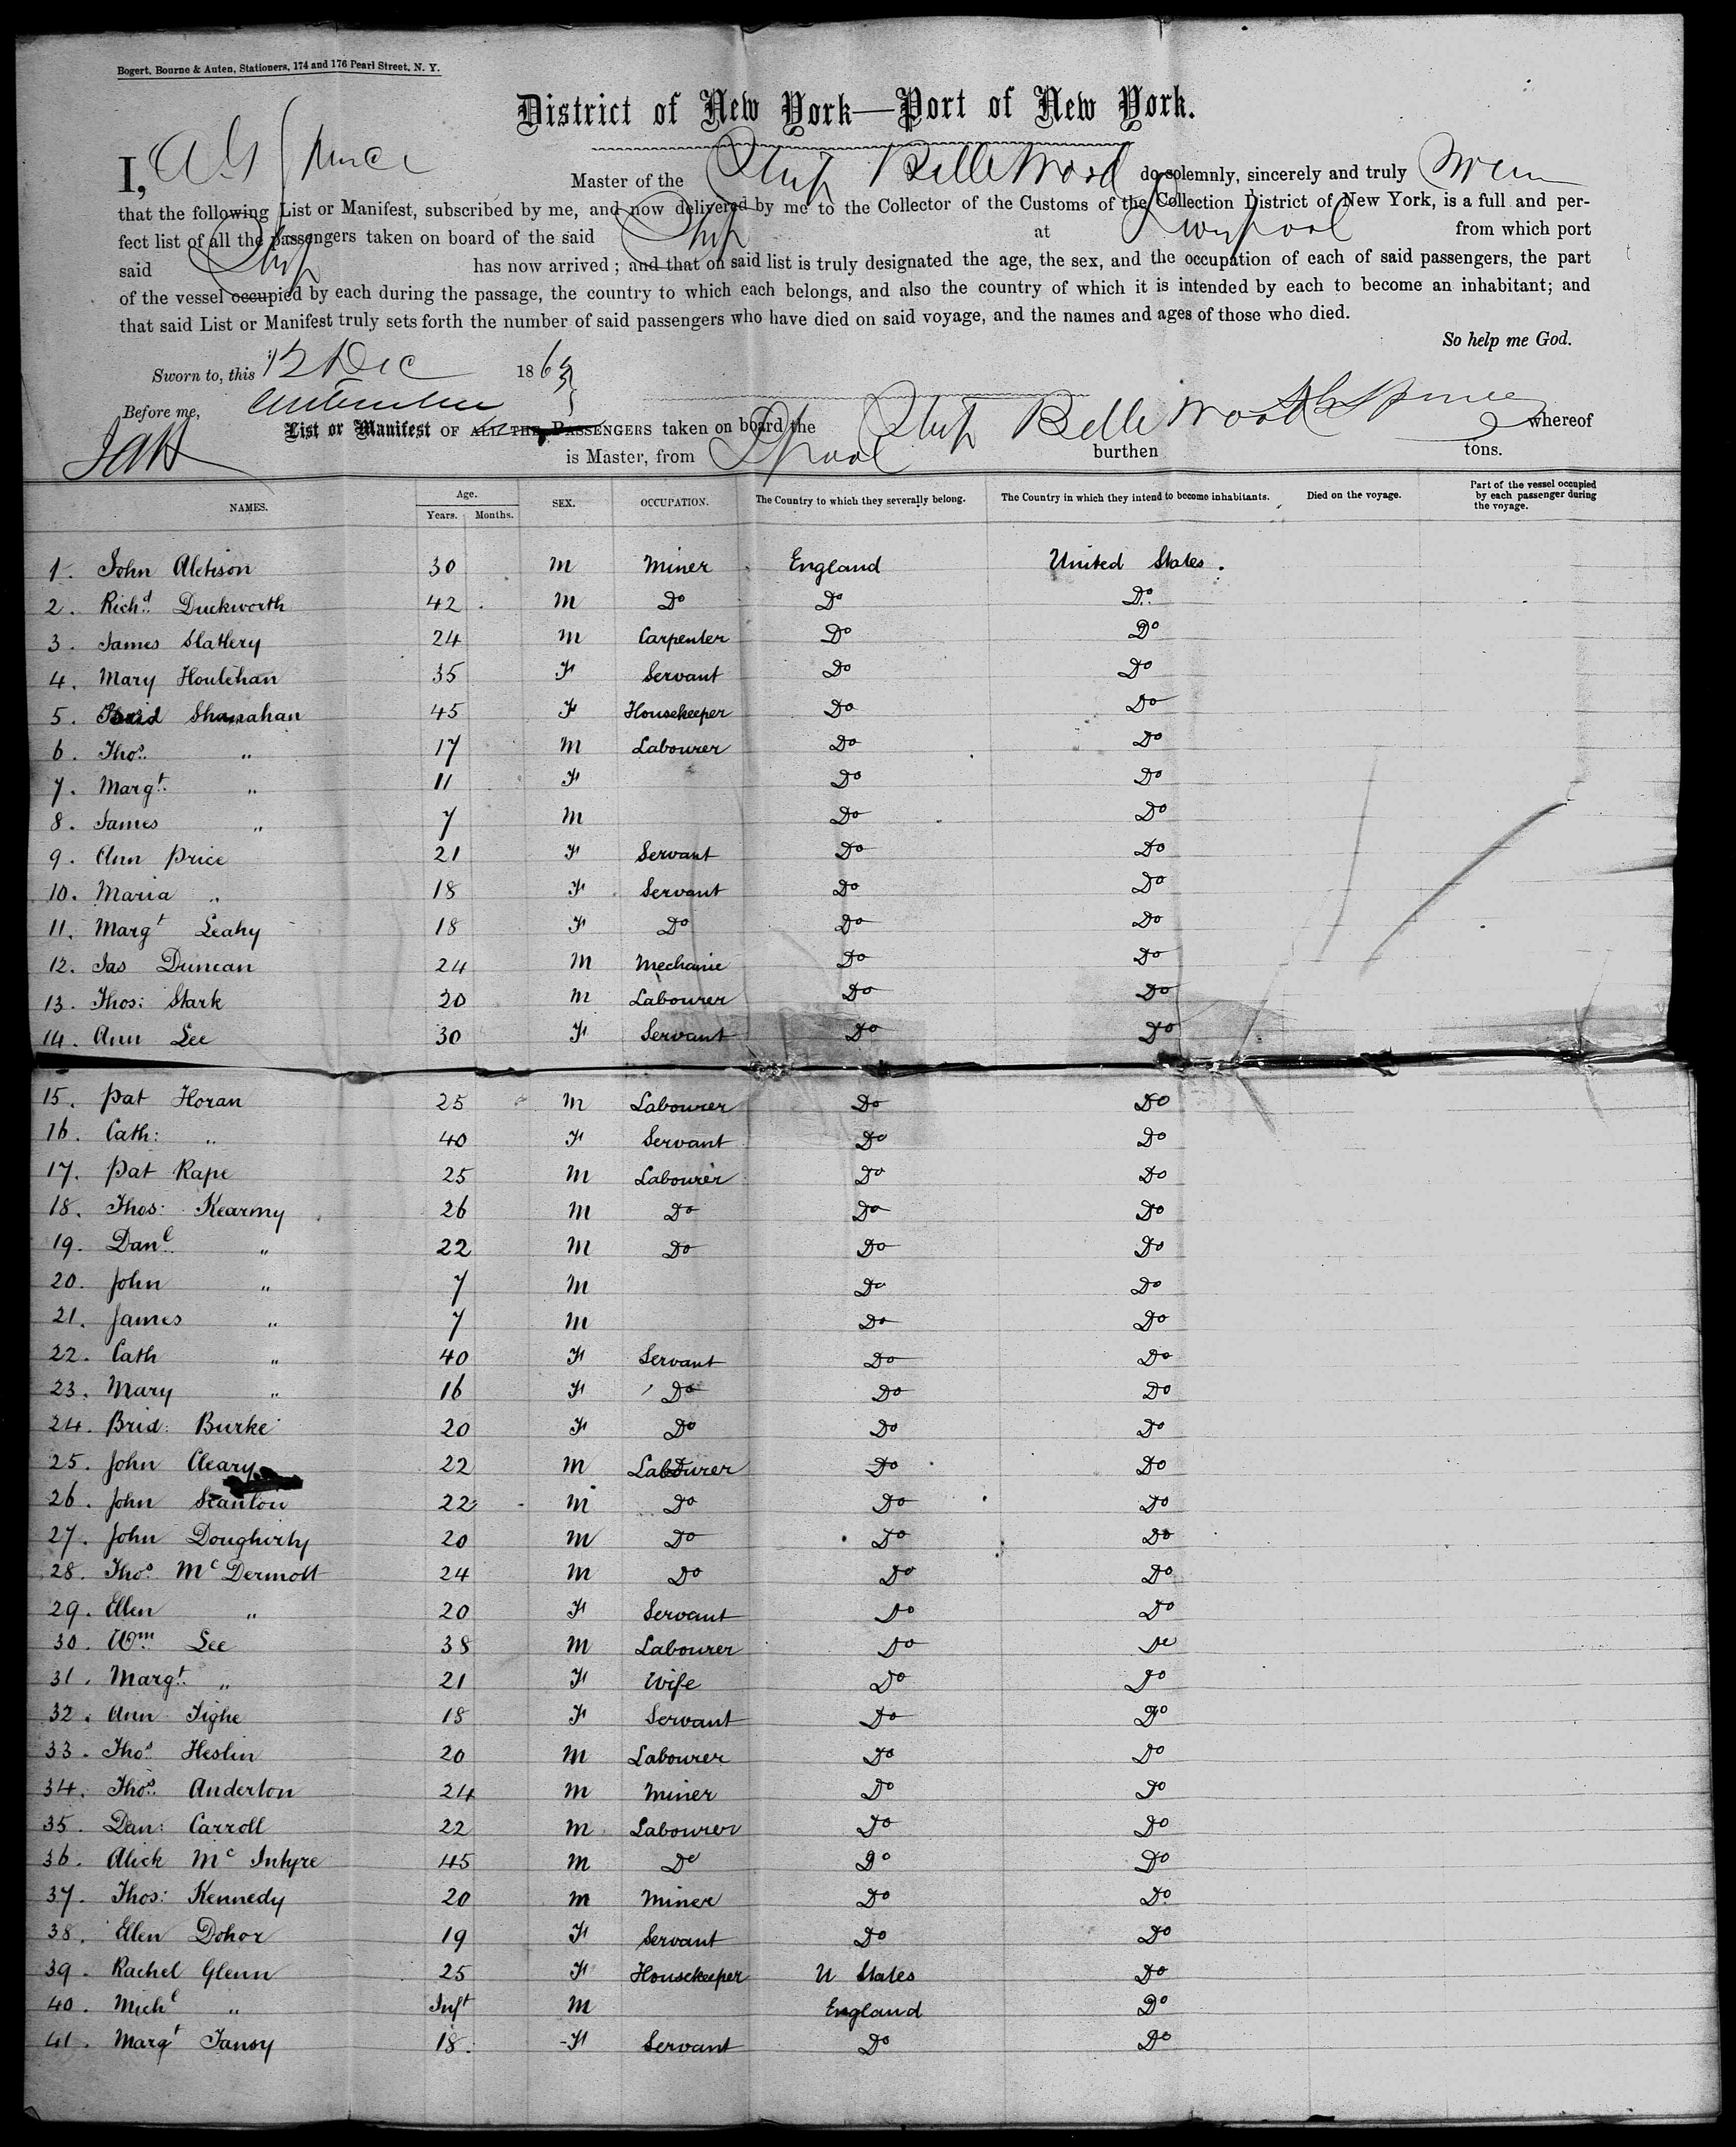 Bogert, Bourne & Auten, Stationers, 174 and 176 Pearl Street, N. Y.
District of New York—Port of New York.
I, A G Spence Master of the Ship Belle Wood do solemnly, sincerely and truly swear
that the following List or Manifest, subscribed by me, and now delivered by me to the Collector of the Customs of the Collection District of New York, is a full and per-
fect list of all the passengers taken on board of the said Ship at Liverpool from which port
said Ship has now arrived; and that on said list is truly designated the age, the sex, and the occupation of each of said passengers, the part
of the vessel occupied by each during the passage, the country to which each belongs, and also the country of which it is intended by each to become an inhabitant; and
that said List or Manifest truly sets forth the number of said passengers who have died on said voyage, and the names and ages of those who died.
So help me God.
Sworn to, this 12 Dec 1863
Before me,
List or Manifest OF ALL THE PASSENGERS taken on board the Ship Belle Wood whereof
is Master, from L'pool burthen tons.
NAMES. Age. Years. Months. SEX. OCCUPATION. The Country to which they severally belong. The Country in which they intend to become inhabitants. Died on the voyage. Part of the vessel occupied by each passenger during the voyage.
1. John 30 M Miner England United States.
2. Richd. Duckworth 42 M Do Do Do
3. James Slattery 24 M Carpenter Do Do
4. Mary Houlehan 35 F Servant Do Do
5. Shanahan 45 F Housekeeper Do Do
6. Thos. " 17 M Labourer Do Do
7. Margt. " 11 F Do Do
8. James " 7 M Do Do
9. Ann Price 21 F Servant Do Do
10. Maria " 18 F Servant Do Do
11. Margt Leahy 18 F Do Do Do
12. Jas Duncan 24 M Mechanic Do Do
13. Thos: Stark 20 M Labourer Do Do
14. Ann Lee 30 F Servant Do Do
15. Pat Horan 25 M Labourer Do Do
16. Cath: " 40 F Servant Do Do
17. Pat Rape 25 M Labourer Do Do
18. Thos: Kearmy 26 M Do Do Do
19. Danl. " 22 M Do Do Do
20. John " 7 M Do Do
21. James " 7 M Do Do
22. Cath " 40 F Servant Do Do
23. Mary " 16 F Do Do Do
24. Brid: Burke 20 F Do Do Do
25. John Cleary 22 M Labourer Do Do
26. John Scanlon 22 M Do Do Do
27. John Dougherty 20 M Do Do Do
28. Thos. McDermott 24 M Do Do Do
29. Ellen " 20 F Servant Do Do
30. Wm. Lee 38 M Labourer Do Do
31. Margt. " 21 F Wife Do Do
32. Ann Tighe 18 F Servant Do Do
33. Thos. Heslin 20 M Labourer Do Do
34. Thos. Anderton 24 M Miner Do Do
35. Dan: Carroll 22 M Labourer Do Do
36. Alick Mc Intyre 45 M Do Do Do
37. Thos: Kennedy 20 M Miner Do Do
38. Ellen Dohor 19 F Servant Do Do
39. Rachel Glenn 25 F Housekeeper U States Do
40. Michl " Inft M England Do
41. Margt Tansy 18. F Servant Do Do